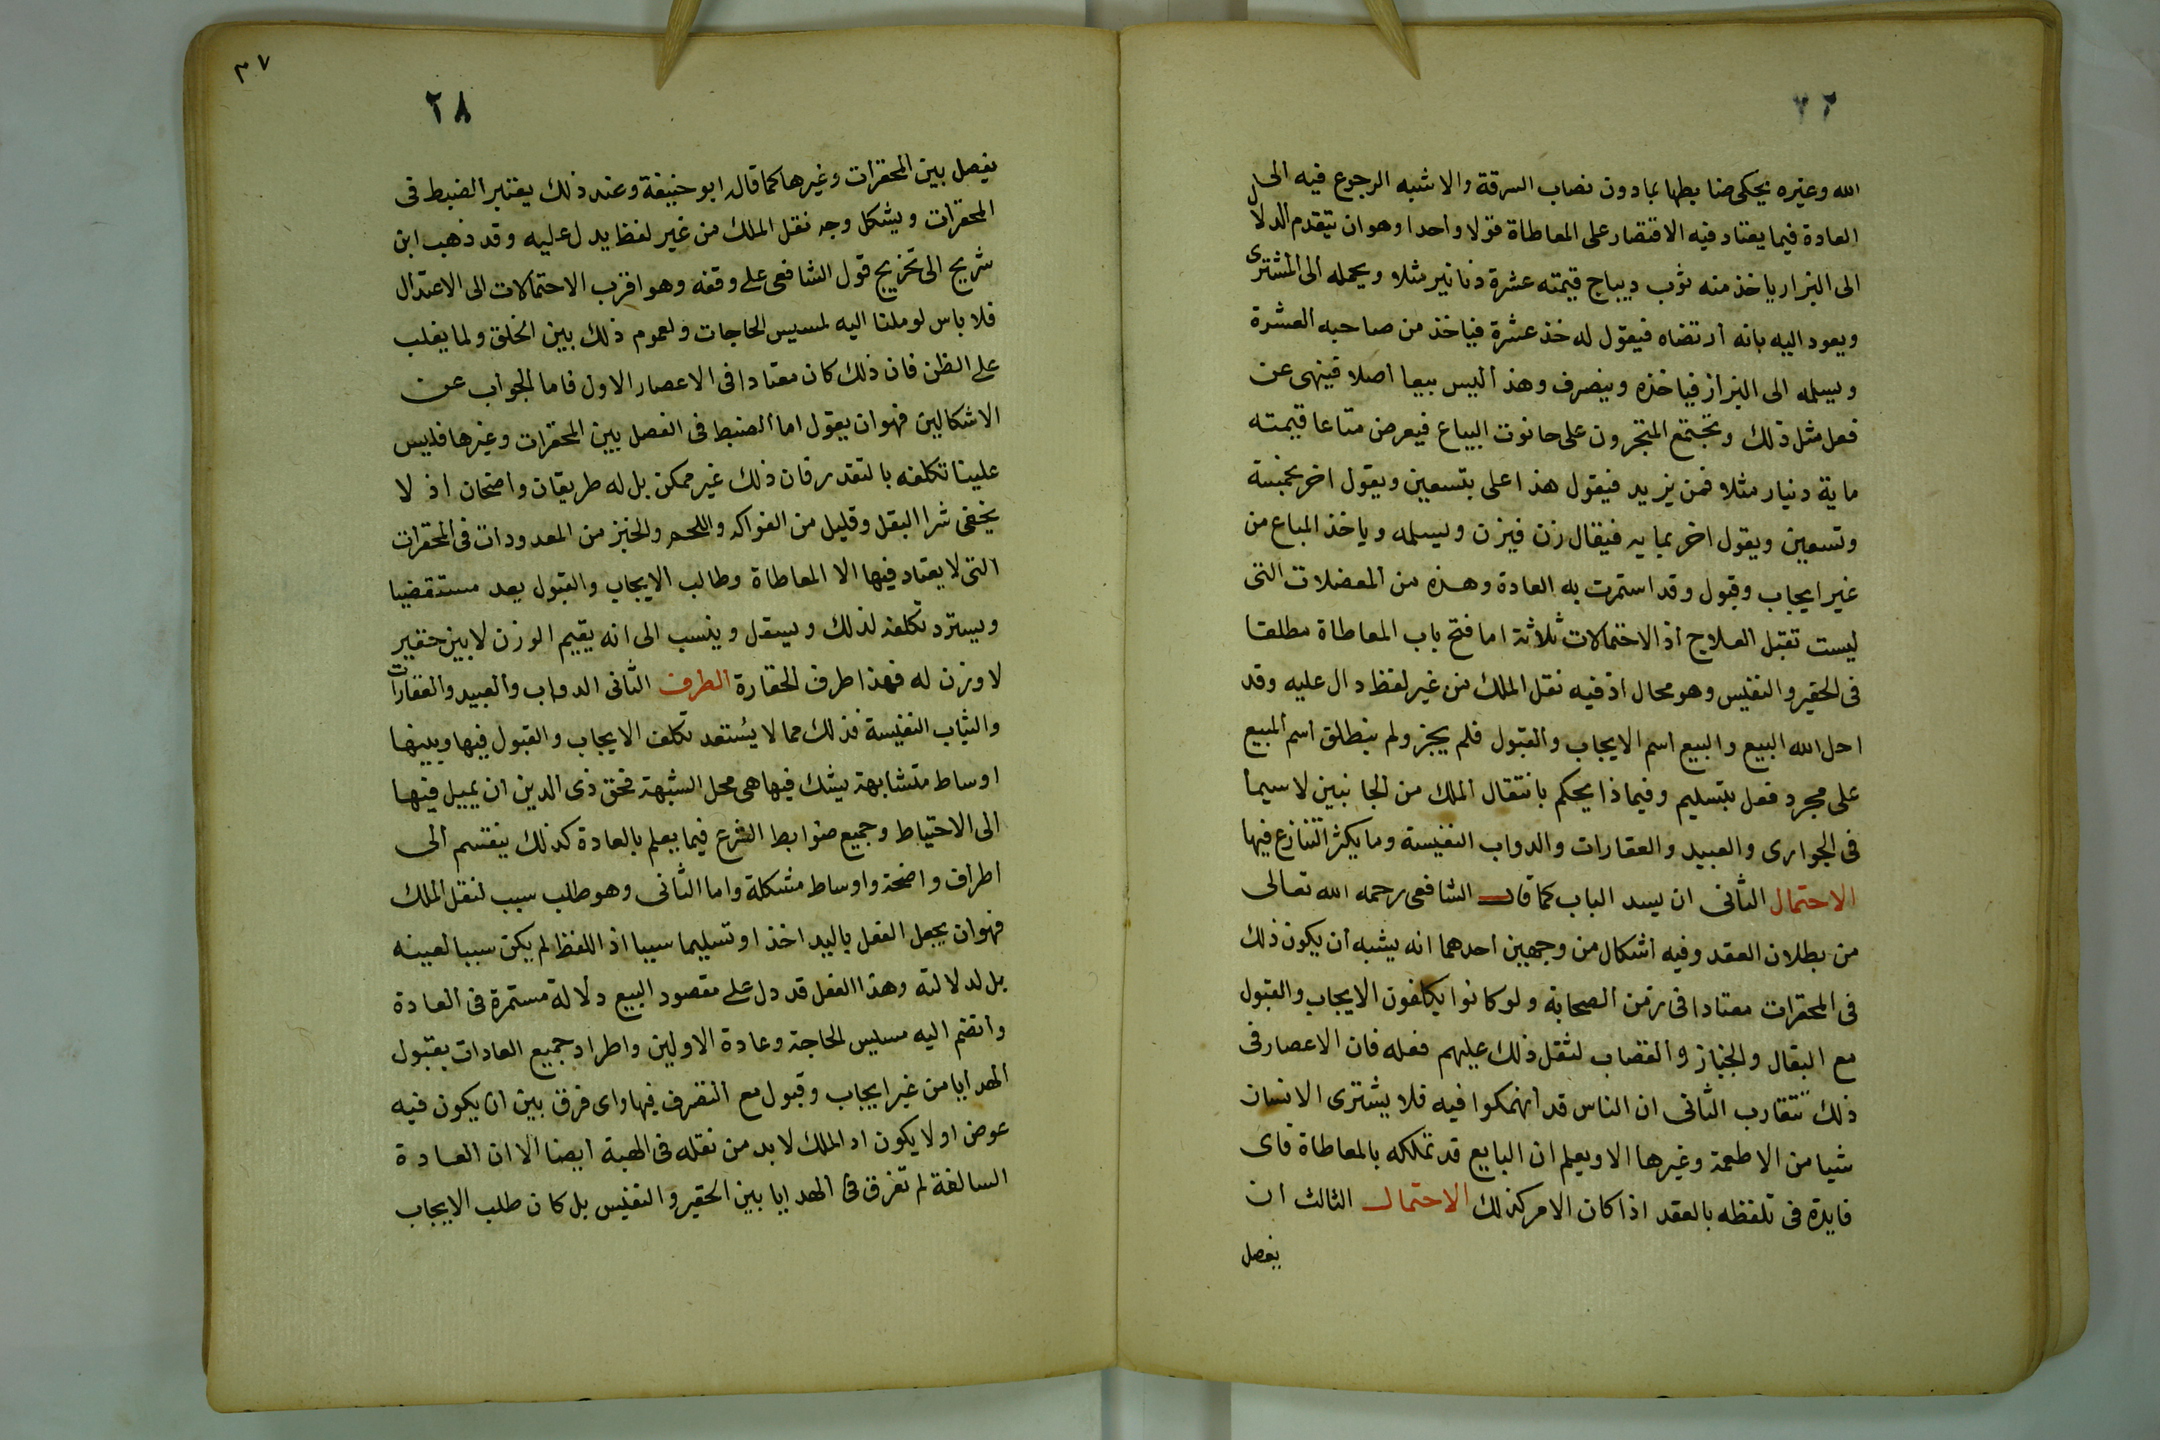 ٢٧
الله وغيره يحكى ضابطها بمادون نصاب السرقة والاشبه الرجوع فيه الى
العادة فيما يعتاد فيه الاقتصار على المعاطاة قولا واحدا وهو ان يتقدم الدلال
الى البزار ياخذ منه ثوب ديباج قيمته عشرة دنانير مثلا ويحمله الى المشترى
ويعود اليه بانه ارتضاه فيقول له خذ عشرة فياخذ من صاحبه العشرة
ويسلمه الى البزاز فياخذه وينصرف وهذا ليس بيعا اصلا فينهى عن
فعل مثل ذلك وتجتمع المتجرون على حانوت البياع فيعرض متاعا قيمته
ماية دينار مثلا فمن يزيد فيقول هذا على بتسعين ويقول اخر بخمسة
وتسعين ويقول اخر بمايه فيقال زن فيزن ويسلمه وياخذ المباع من
غير ايجاب وقبول وقد استمرت به العادة وهذه من المعضلات التى
ليست تقبل العلاج اذ الاحتمالات ثلاثة اما فتح باب المعاطاة مطلقا
فى الحقير والنفيس وهو محال اذ فيه نقل الملك من غير لفظ دال عليه وقد
احل الله البيع والبيع اسم الايجاب والقبول فلم يجز ولم ينطلق اسم المبيع
على مجرد فعل بتسليم وفيما ذا يحكم بانتقال الملك من الجانبين لا سيما
فى الجوارى والعبيد والعقارات والدواب النفيسة وما يكثر التنازع فيها
الاحتمال الثانى ان يسد الباب كما قال الشافعى رحمه الله تعالى
من بطلان العقد وفيه اشكال من وجهين احدهما انه يشبه ان يكون ذلك
فى المحقرات معتادا فى زمن الصحابة ولو كانوا يكلفون الايجاب والقبول
مع البقال والخباز والقصاب لثقل ذلك عليهم فعله فان الاعصار فى
ذلك تتقارب الثانى ان الناس قد انهمكوا فيه فلا يشترى الانسان
شيا من الاطعمة وغيرها الا ويعلم ان البايع قد تملكه بالمعاطاة فاى
فايدة فى تلفظه بالعقد اذا كان الامر كذلك الاحتمال الثالث ان
يفصل
٣٧
٢٨
يفصل بين المحقرات وغيرها كما قاله ابو حنيفة وعند ذلك يعتبر الضبط فى
المحقرات ويشكل وجه نقل الملك من غير لفظ يدل عليه وقد ذهب ابن
شريح الى تخريج قول الشافعى على وقفه وهو اقرب الاحتمالات الى الاعتدال
فلا باس لو ملنا اليه لمسيس الحاجات ولعموم ذلك بين الخلق ولما يغلب
على الظن فان ذلك كان معتادا فى الاعصار الاول فاما الجواب عن
الاشكالين فهو ان يقول اما الضبط فى الفصل بين المحقرات وغيرها فليس
علينا تكلفه بالتقدر فان ذلك غير ممكن بل له طريقان واضحان اذ لا
يخفى شرا البقل وقليل من الفواكه واللحم والخبز من المعدودات فى المحقرات
التى لا يعتاد فيها الا المعاطاة وطالب الايجاب والقبول يعد مستقضيا
ويسترد تكلفه لذلك ويسقل وينسب الى انه يقيم الوزن لا بين حقير
لا وزن له فهذا طرف الحقارة الطرف الثانى الدواب والعبيد والعقارات
والثياب النفيسة فذلك مما لا يستعد تكلف الايجاب والقبول فيها وبينها
اوساط متشابهة يشك فيها هى محل الشبهة فحق ذى الدين ان يميل فيها
الى الاحتياط وجميع ضوابط الشرع فيما يعلم بالعادة كذلك ينقسم الى
اطراف واضحة واوساط مشكلة واما الثانى وهو طلب سبب لنقل الملك
فهو ان يجعل الفعل باليد اخذا وتسليما سببا اذ اللفظ لم يكن سببا لعينه
بل لدلالته وهذا الفعل قد دل على مقصود البيع دلالة مستمرة فى العادة
وانضم اليه مسيس الحاجة وعادة الاولين واطراد جميع العادات بقبول
الهدايا من غير ايجاب وقبول مع التصرف فيها واى فرق بين ان يكون فيه
عوض او لا يكون اذ الملك لا بد من نقله فى الهبة ايضا الا ان العادة
السالفة لم تفرق فى الهدايا بين الحقير والنفيس بل كان طلب الايجاب